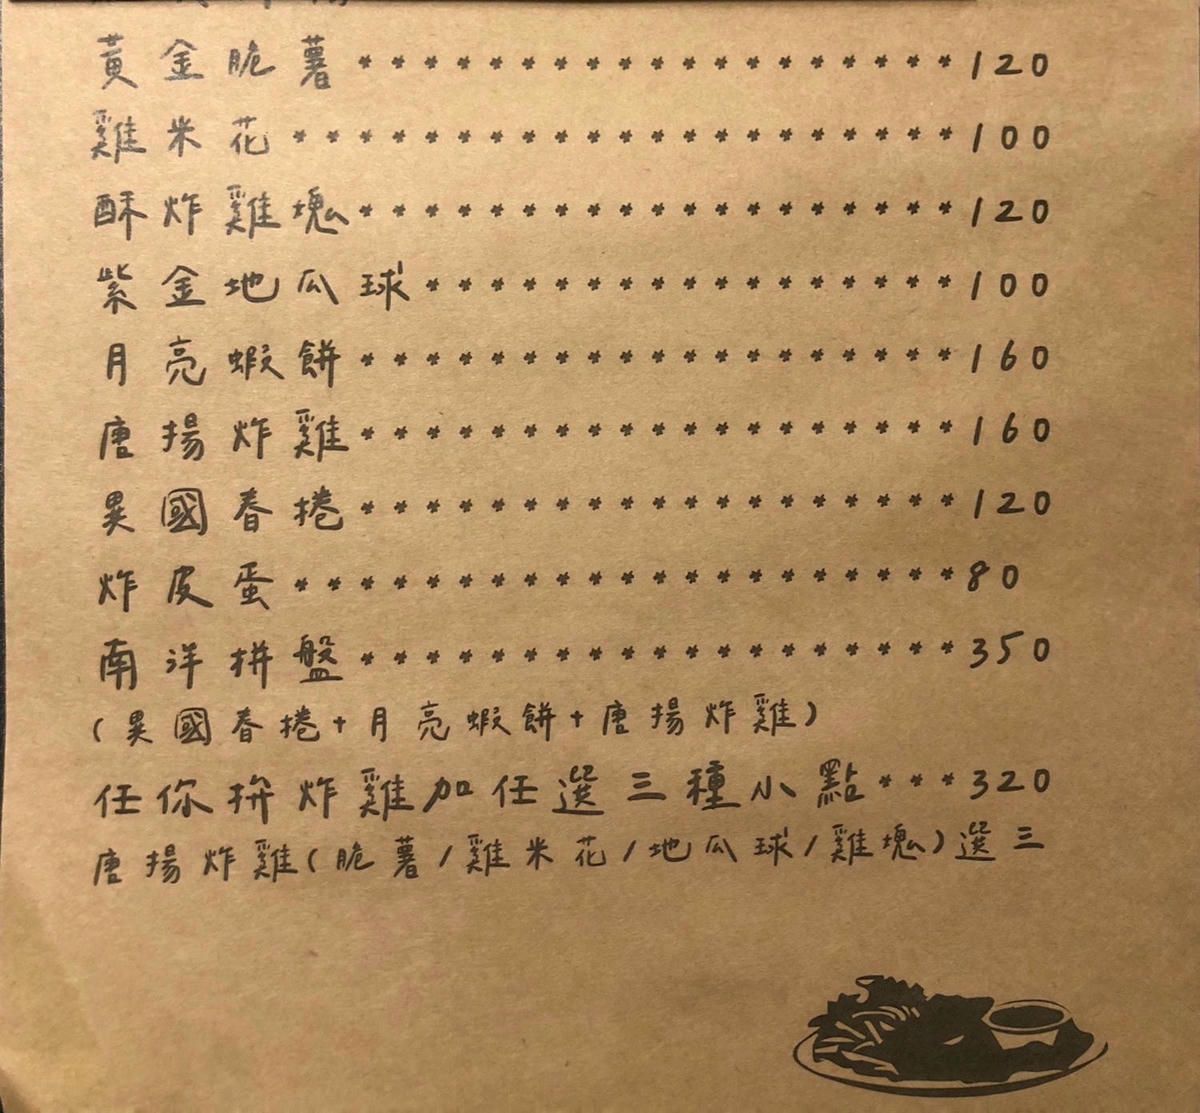 黃金脆薯******************120
雞米花********************100
酥炸雞塊******************120
紫金地瓜球****************100
月亮蝦餅******************160
唐揚炸雞******************160
異國春捲******************120
炸皮蛋********************80
南洋拼盤******************350
(異國春捲+月亮蝦餅+唐揚炸雞)
任你拚炸雞加任選三種小點***320
唐揚炸雞(脆薯/雞米花/地瓜球/雞塊)選三